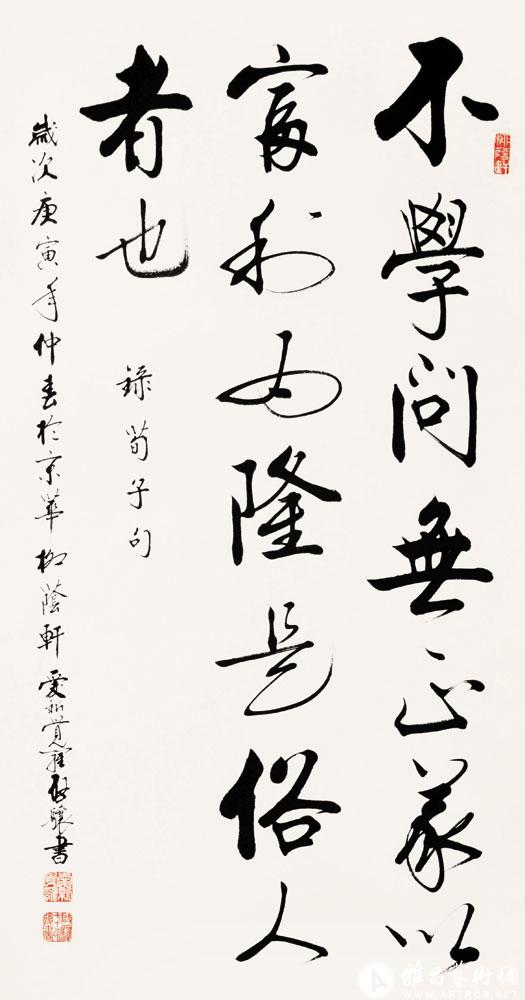 不學問無正義以
富利為隆是俗人
者也
錄荀子句
歲次庚寅年仲春於京華柳蔭軒愛新覺羅啟驤書
雅昌藝術網
WWW.ARTRON.NET